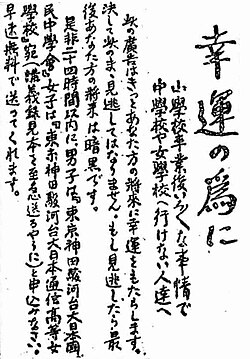 幸運の爲に
小學校卒業後いろくな事情で
中學校や女學校へ行けない人達へ
此の廣告はきつとあなた方の將來に幸運をもたらします。
決して此のまゝ見逃してはなりません。もし見逃したら最
後あなた方の將來は暗黒です。
是非二十四時間以内に男子は「東京神田駿河台大日本國
民中學會」女子は「東京神田駿河台大日本通信高等女
學校」宛へ「講義録見本を至急送るやうに」と申込みなさい。
早速無料で送つてくれます。